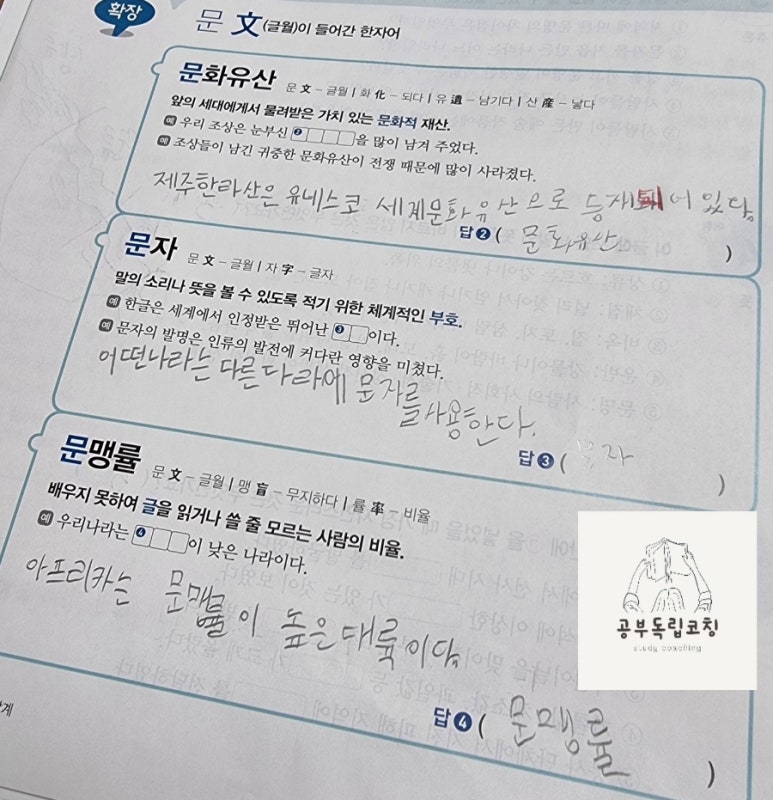 확장
문 文(글월)이 들어간 한자어
문화유산 문 文 - 글월 | 화 化 - 되다 | 유 遺 - 남기다 | 산 産 - 낳다
앞의 세대에게서 물려받은 가치 있는 문화적 재산.
예 우리 조상은 눈부신 ❷□□□□을 많이 남겨 주었다.
예 조상들이 남긴 귀중한 문화유산이 전쟁 때문에 많이 사라졌다.
제주한라산은 유네스코 세계문화유산으로 등재돼어 있다.
답 ❷ ( 문화유산 )
문자 문 文 - 글월 | 자 字 - 글자
말의 소리나 뜻을 볼 수 있도록 적기 위한 체계적인 부호.
예 한글은 세계에서 인정받은 뛰어난 ❸□□이다.
예 문자의 발명은 인류의 발전에 커다란 영향을 미쳤다.
어떤나라는 다른 다라에 문자를 사용한다.
답 ❸ ( 문자 )
문맹률 문 文 - 글월 | 맹 盲 - 무지하다 | 률 率 - 비율
배우지 못하여 글을 읽거나 쓸 줄 모르는 사람의 비율.
예 우리나라는 ❹□□□이 낮은 나라이다.
아프리카는 문맹률이 높은 대륙이다.
답 ❹ ( 문맹률 )
공부독립코칭
study coaching
계